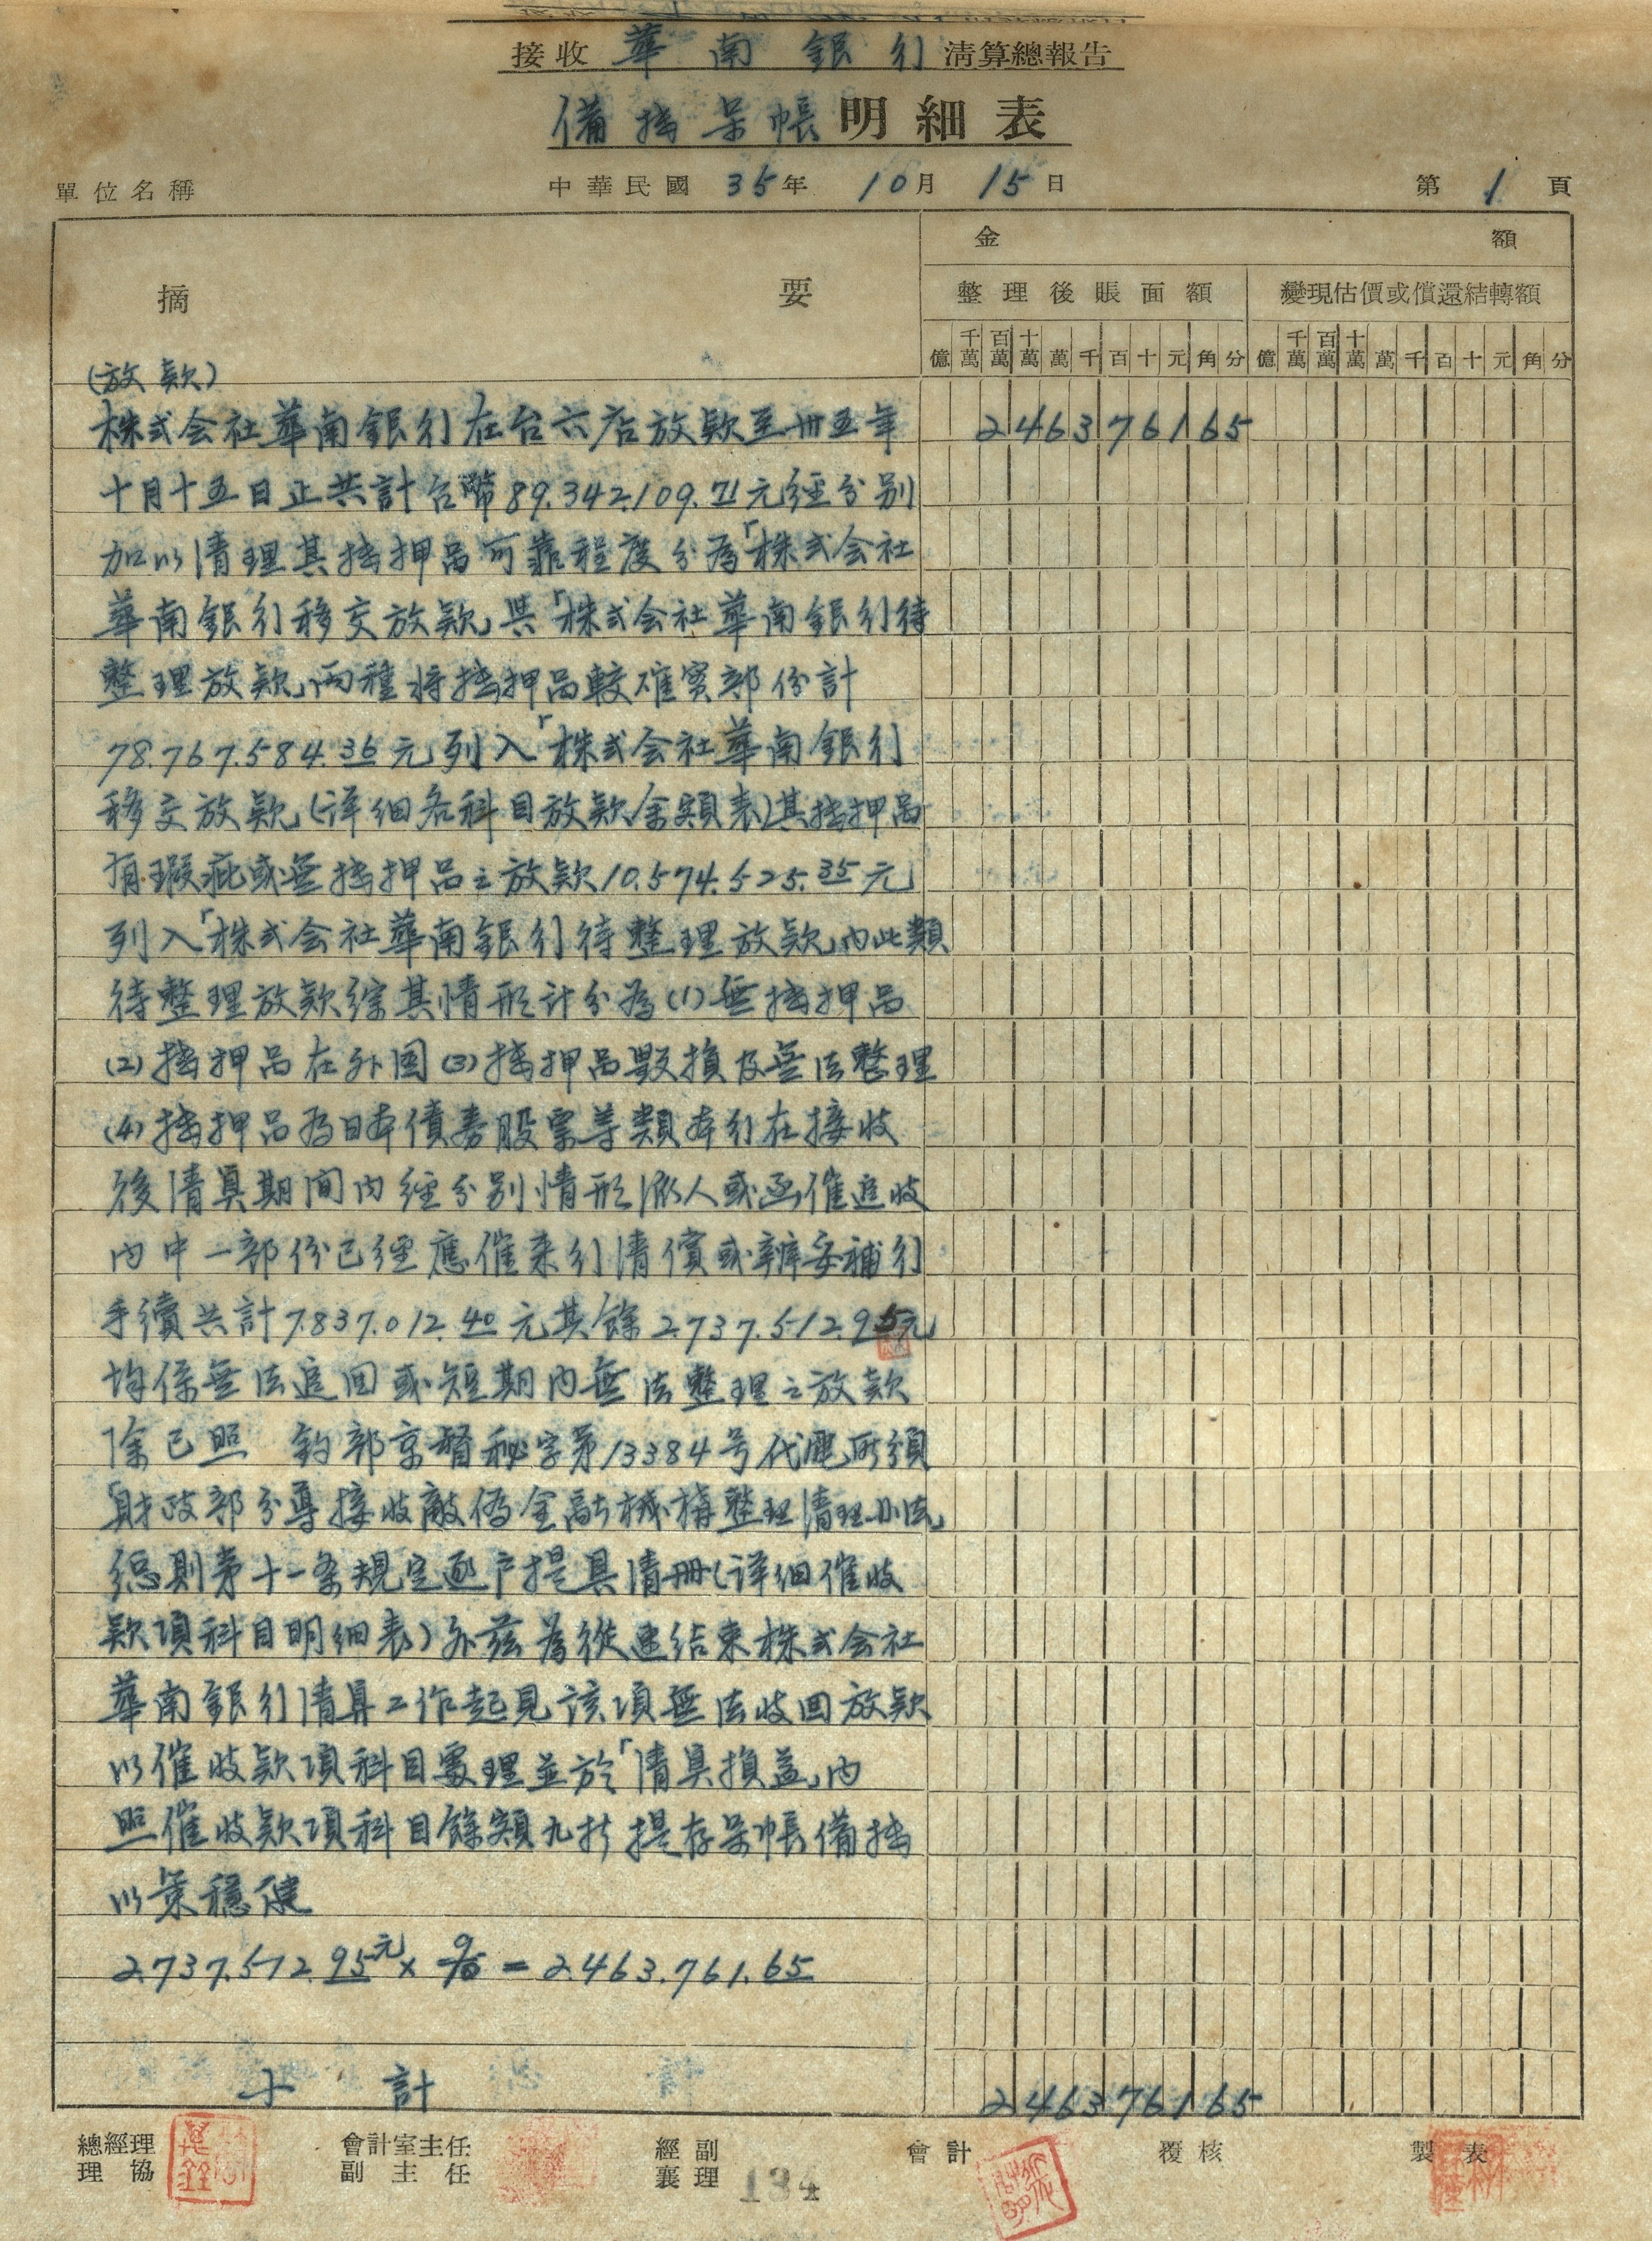 接收 華南銀行 清算總報告
備抵呆帳明細表
單位名稱 中華民國 35年 10月 15日 第 1 頁
金 額
摘 要
整理後賬面額 變現估價或償還結轉額
億 千萬 百萬 十萬 萬 千 百 十 元 角 分 億 千萬 百萬 十萬 萬 千 百 十 元 角 分
(放款)
株式会社華南銀行在台六店放款至卅五年 2 4 6 3 7 6 1 6 5
十月十五日止共計台幣89.342.109.71元經分別
加以清理其抵押品可靠程度分為「株式会社
華南銀行移交放款」與「株式会社華南銀行待
整理放款」兩種将抵押品較確实部份計
78.767.584.36元列入「株式会社華南銀行
移交放款」(详细各科目放款余額表)其抵押品
有瑕疵或無抵押品之放款10.574.525.35元
列入「株式会社華南銀行待整理放款」內此類
待整理放款綜其情形计分為(1)無抵押品
(2)抵押品在外国(3)抵押品毀損及無法整理
(4)抵押品為日本債券股票等類本行在接收
後清算期间内經分別情形派人或函催追收
内中一部份已經應催来行清償或辦妥補行
手續共計7.837.012.40元其餘2.737.512.95元
均係無法追回或短期内無法整理之放款
除已照 鈞部京督秘字第13384号代電所頒
「財政部分導接收敵偽金融機構整理清理办法」
總則第十一条規定逐户提具清冊(详细催收
款項科目明细表)外茲為從速結束株式会社
華南銀行清算工作起見該項無法收回放款
以催收款項科目處理並於「清算損益」内
照催收款項科目餘額九折提存呆帳備抵
以策穩健
2.737.512.95元 × 9/10 = 2.463.761.65
小 計 2 4 6 3 7 6 1 6 5
總經理 會計室主任 經副 會計 覆核 製表
理 協 副 主 任 襄理 134